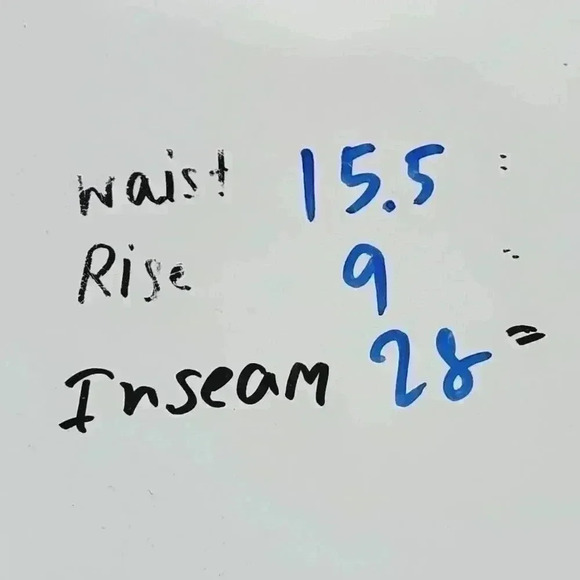 waist 15.5 "
Rise 9 "
Inseam 28 "